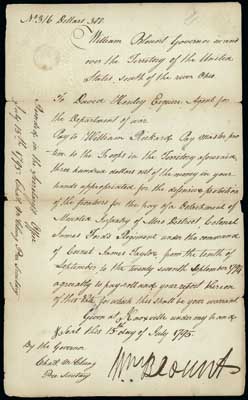 No 316 Dollars 300
William Blount Governor in and
over the Territory of the United
States, south of the river Ohio
To David Henley Esquire Agent for
the Department of war
Pay to William Rickard Pay master pro
tem to the Troops in the Territory aforesaid,
three hundred dollars out of the money in your
hands appropriated for the defensive protection
of the frontiers for the pay of a detachment of
Mounted Infantry of Mero District Colonel
James Ford's Regiment under the command
of Cornet James Taylor from the tenth of
September to the twenty seventh September 1794
agreeably to pay-roll and your report thereon
of this date, for which this shall be your warrant
Given at Knoxville under my hand
& seal this 15th day of July 1795.
By the Governor
Pro Secretary
Wm Blount
Recorded in the Secretary's Office
July 15th 1795.
Pro Secretary